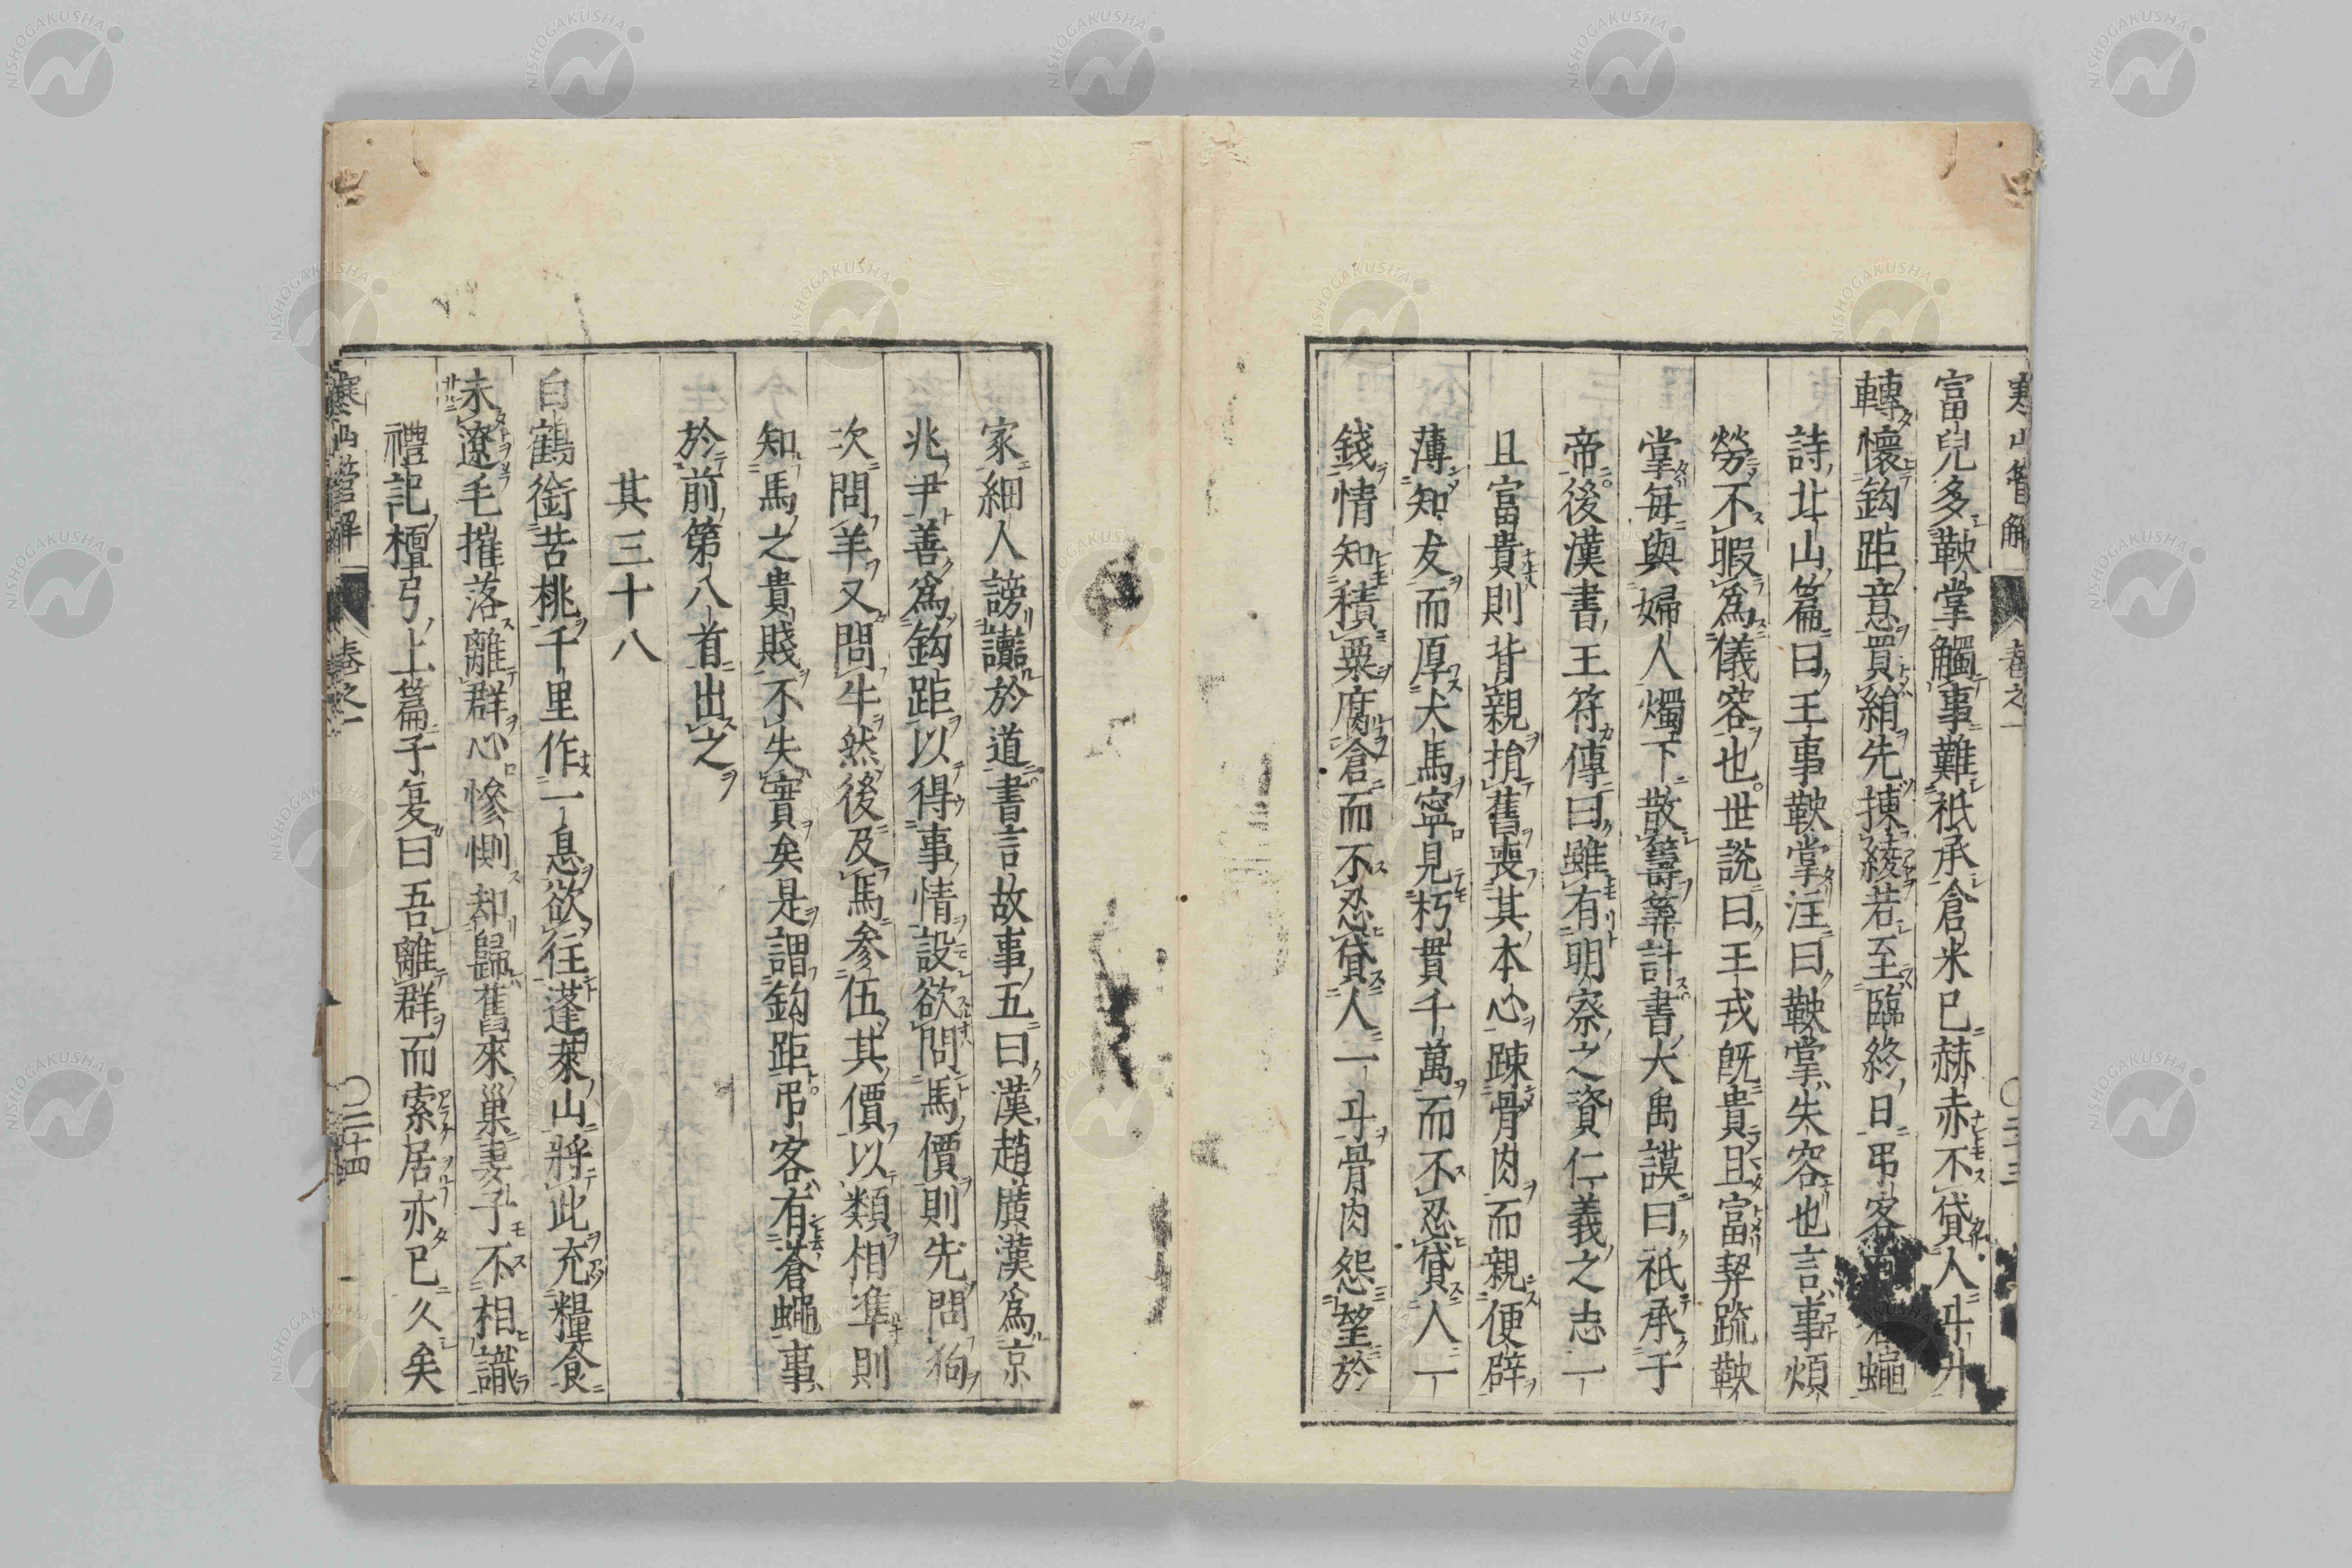 富兒多鞅掌觸事難祇承倉米已赫赤不貸人斗升
轉懷鈎距意買絹先揀綾若至臨終日弔客有蒼蠅
詩北山篇曰王事鞅掌注曰鞅掌失容也言事煩
勞不暇為儀容也世說曰王戎既貴且富契疏鞅
掌每與婦人燭下散籌筭計書大禹謨曰祇承于
帝後漢書王符傳曰雖有明察之資仁義之志一
旦富貴則背親捐舊喪其本心踈骨肉而親便辟
薄知友而厚犬馬寧見朽貫千萬而不忍貸人一
錢情知積粟腐倉而不忍貸人一斗骨肉怨望於
家細人謗讟於道書言故事五曰漢趙廣漢為京
兆尹善為鈎距以得事情設欲問馬價則先問狗
次問羊又問牛然後及馬參伍其價以類相準則
知馬之貴賤不失實矣是謂鈎距弔客有蒼蠅事
於前第八首出之
其三十八
白鶴銜苦桃千里作一息欲往蓬萊山將此充糧食
未遼毛摧落離群心慘惻却歸舊來巢妻子不相識
禮記檀弓上篇子夏曰吾離群而索居亦已久矣
寒山管解 卷之一 〇二十四